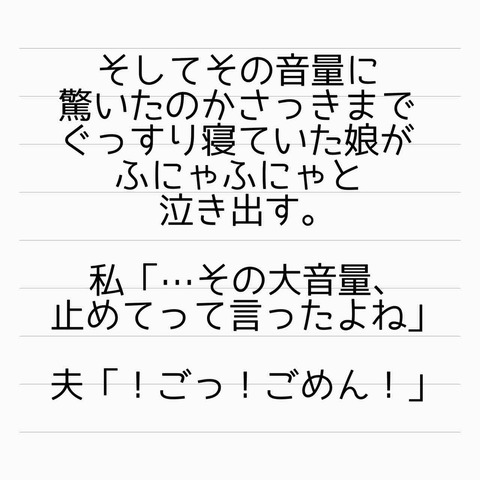 そしてその音量に
驚いたのかさっきまで
ぐっすり寝ていた娘が
ふにゃふにゃと
泣き出す。
私「…その大音量、
止めてって言ったよね」
夫「！ごっ！ごめん！」